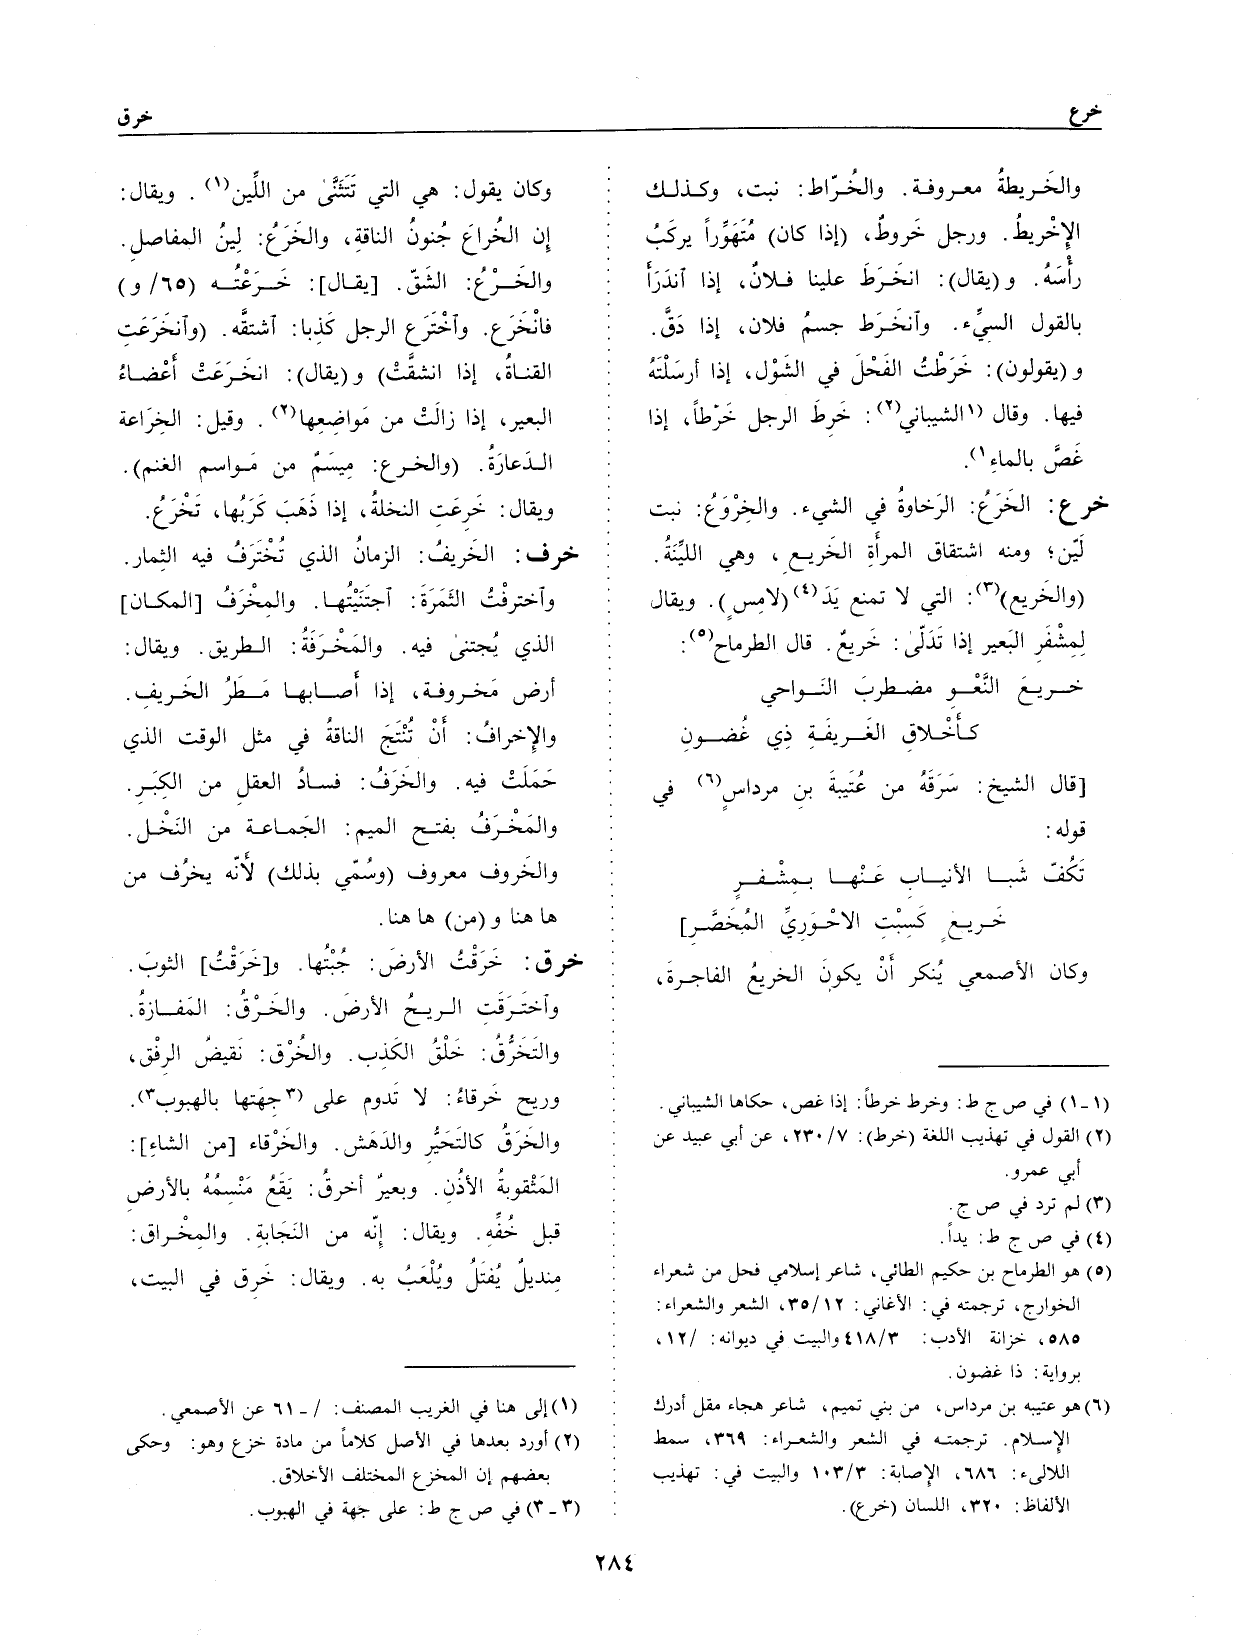 خرع
خرق
والخَريطةُ معروفة. والخُرّاط: نبت، وكذلك
الإخْريطُ. ورجل خَروطٌ، (إذا كان) مُتَهَوِّراً يركَبُ
رأْسَهُ. و(يقال): انخَرطَ علينا فلانٌ، إذا آندَرَأَ
بالقول السيِّء. وآنخَرَط جسمُ فلان، إذا دَقَّ.
و(يقولون): خَرَطْتُ الفَحْلَ في الشَوْل، إذا أرسَلْتَهُ
فيها. وقال (١الشيباني(٢): خَرِطَ الرجل خَرْطاً، إذا
غَصَّ بالماء١).
خرع: الخَرَعُ: الرَخاوةُ في الشيء. والخِرْوَعُ: نبت
لَيّن؛ ومنه اشتقاق المرأةِ الخَريعِ، وهي اللَيِّنَةُ.
(والخَريع)(٣): التي لا تمنع يَدَ(٤) (لامِسٍ). ويقال
لِمِشْفَرِ البَعير إذا تَدَلّىٰ: خَريعٌ. قال الطرماح(٥):
خَريعَ النَّعْوِ مضطربَ النَواحي
كأخْلاقِ الغَريفَةِ ذِي غُضونِ
[قال الشيخ: سَرَقَهُ من عُتَيبةَ بنِ مرداسٍ(٦) في
قوله:
تَكُفّ شَبا الأنيابِ عَنْها بِمِشْفرٍ
خَريعٍ كَسِبْتِ الاحْوَرِيِّ المُخَصَّرِ]
وكان الأصمعي يُنكر أَنْ يكونَ الخريعُ الفاجرةَ،
(١-١) في ص ج ط: وخرط خرطاً: إذا غص، حكاها الشيباني.
(٢) القول في تهذيب اللغة (خرط): ٢٣٠/٧، عن أبي عبيد عن
أبي عمرو.
(٣) لم ترد في ص ج.
(٤) في ص ج ط: يداً.
(٥) هو الطرماح بن حكيم الطائي، شاعر إسلامي فحل من شعراء
الخوارج، ترجمته في: الأغاني: ٣٥/١٢، الشعر والشعراء:
٥٨٥، خزانة الأدب: ٤١٨/٣ والبيت في ديوانه: /١٢،
برواية: ذا غضون.
(٦) هو عتيبه بن مرداس، من بني تميم، شاعر هجاء مقل أدرك
الإسلام. ترجمته في الشعر والشعراء: ٣٦٩، سمط
اللالىء: ٦٨٦، الإصابة: ١٠٣/٣ والبيت في: تهذيب
الألفاظ: ٣٢٠، اللسان (خرع).
وكان يقول: هي التي تَتَثَنَّىٰ من اللِّين(١). ويقال:
إن الخُراعَ جُنونُ الناقةِ، والخَرَعُ: لِينُ المفاصل.
والخَرْعُ: الشَقّ. [يقال]: خَرَعْتُه (٦٥/و)
فانْخَرَع. وآخْتَرع الرجل كَذِبا: آشتقَّه. (وآنخَرَعَتِ
القناةُ، إذا انشقَّت) و(يقال): انخرَعَتْ أَعْضاءُ
البعير، إذا زالَتْ من مَواضِعِها(٢). وقيل: الخِرَاعة
الدعارَةُ. (والخرع: مِيسَمٌ من مَواسم الغنم).
ويقال: خَرِعَتِ النخلةُ، إذا ذَهَبَ كَرَبُها، تَخْرَعُ.
خرف: الخَريفُ: الزمانُ الذي تُخْتَرَفُ فيه الثمار.
وآخترفْتُ الثَمَرَةَ: آجتَنَيْتُها. والمِخْرَفُ [المكان]
الذي يُجتنىٰ فيه. والمَخْرَفَةُ: الطريق. ويقال:
أرض مَخروفة، إذا أصابها مَطَرُ الخَريفِ.
والإخرافُ: أَنْ تُنْتَجَ الناقةُ في مثل الوقت الذي
حَمَلَتْ فيه. والخَرَفُ: فسادُ العقلِ من الكِبَرِ.
والمَخْرَفُ بفتح الميم: الجَماعة من النَخْل.
والخَروف معروف (وسُمّي بذلك) لأنّه يخرُف من
ها هنا و(من) ها هنا.
خرق: خَرَقْتُ الأرضَ: جُبْتُها. و[خَرَقْتُ] الثوبَ.
وآختَرَقَتِ الريحُ الأرضَ. والخَرْقُ: المَفازةُ.
والتَخَرُّقُ: خَلْقُ الكَذِب. والخُرْق: نَقيضُ الرِفْق،
وريح خَرقاءُ: لا تَدوم على (٣جِهَتها بالهبوب٣).
والخَرَقُ كالتَحَيُّر والدَهَش. والخَرْقاء [من الشاء]:
المَثْقوبةُ الأذُنِ. وبعيرٌ أخرقُ: يَقَعُ مَنْسِمُهُ بالأرضِ
قبل خُفِّه. ويقال: إنّه من النَجابةِ. والمِخْراق:
مِنديلٌ يُفتَلُ ويُلْعَبُ به. ويقال: خَرِق في البيت،
(١) إلى هنا في الغريب المصنف: / - ٦١ عن الأصمعي.
(٢) أورد بعدها في الأصل كلاماً من مادة خزع وهو: وحكى
بعضهم إن المخزع المختلف الأخلاق.
(٣ - ٣) في ص ج ط: على جهة في الهبوب.
٢٨٤